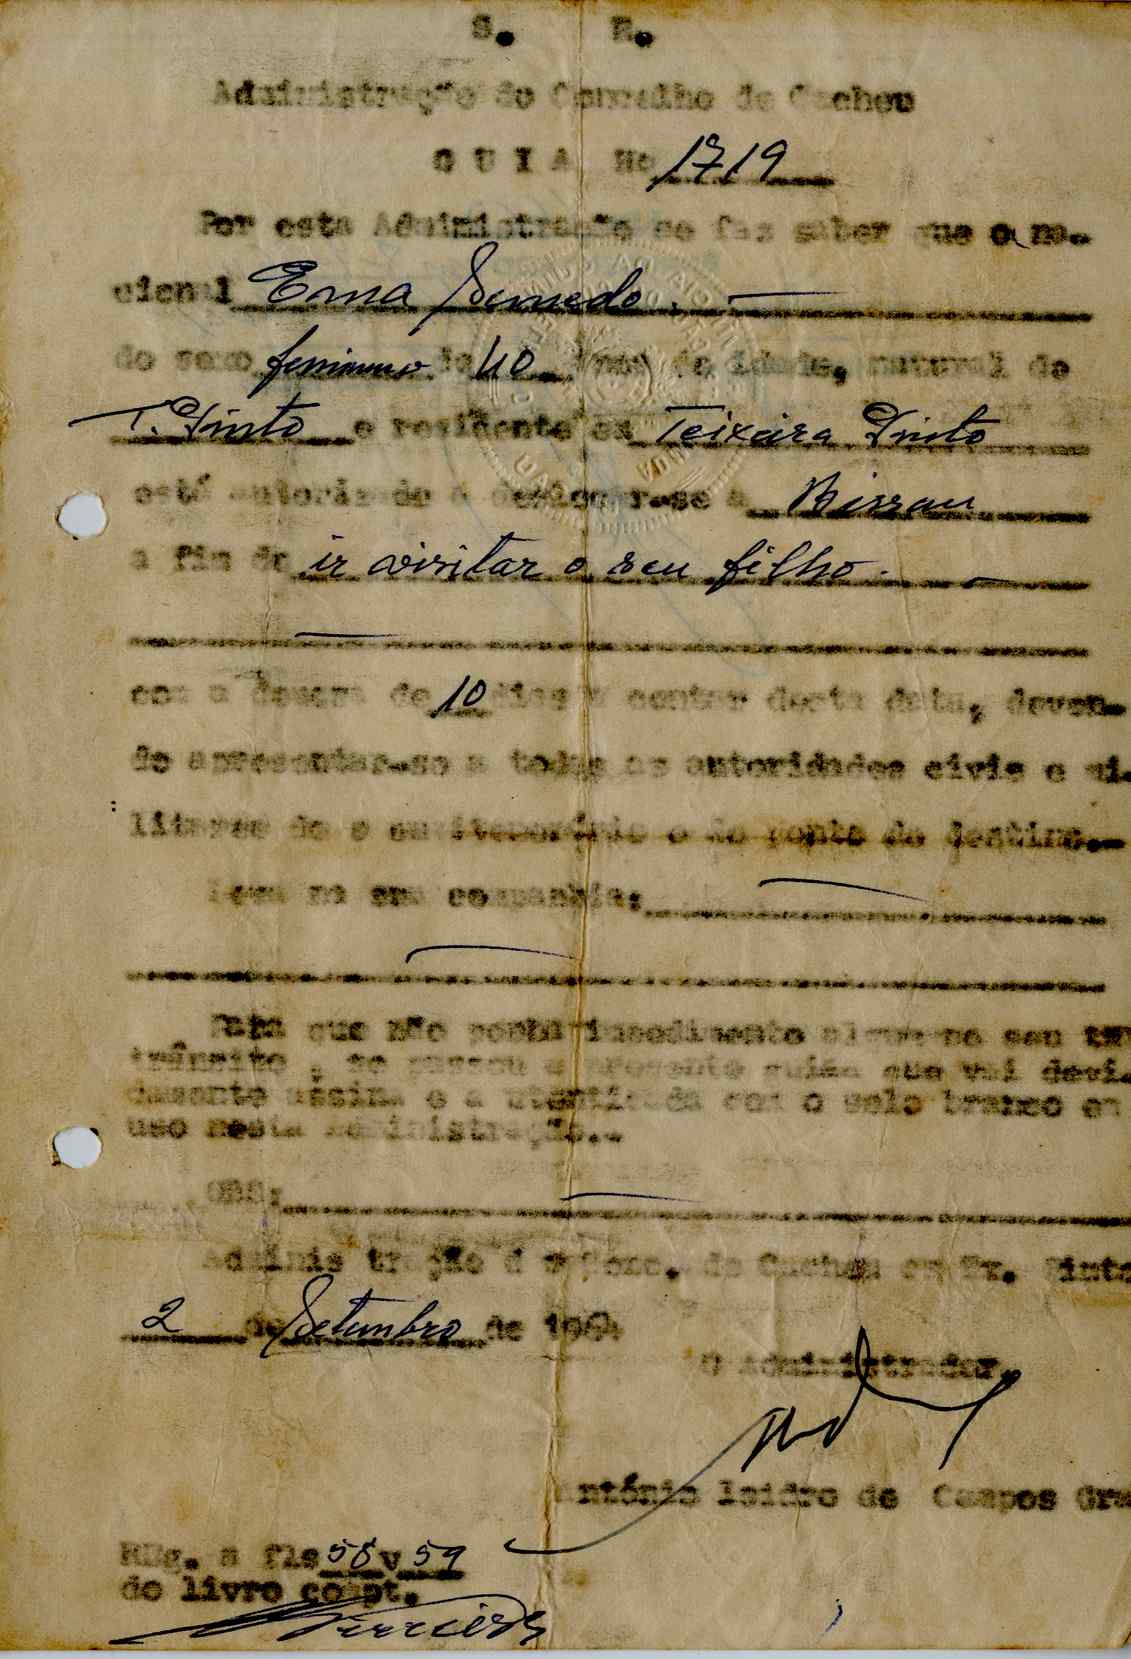 S. R.
Administração do Conxelho de Cacheu
G U I A No 1719
Por esta Administração se faz saber que o na-
cional Ema Semedo. —
do sexo feminino de 40 anos de idade, natural de
T. Pinto e residente em Teixeira Pinto
está autorizado a deslocar-se a Bissau
a fim de ir visitar o seu filho. —
com a demora de 10 dias a contar desta data, deven-
do apresentar-se a todas as autoridades civis e mi-
litares do e do ponto do destino.-
Leva na sua companhia:
Para que não ponha impedimento algum no seu
trânsito , se passou a presente guia que vai devi-
damente assina e a utenticada com o selo branco em
uso nesta Administração.-
OBS:
Adminis tração d o Conc. de Cacheu em Tx. Pinto
2 de Setembro de 1964
O Administrador,
António Isidro de Campos Gra
REg. a fls 58 v 59
do livro compt.